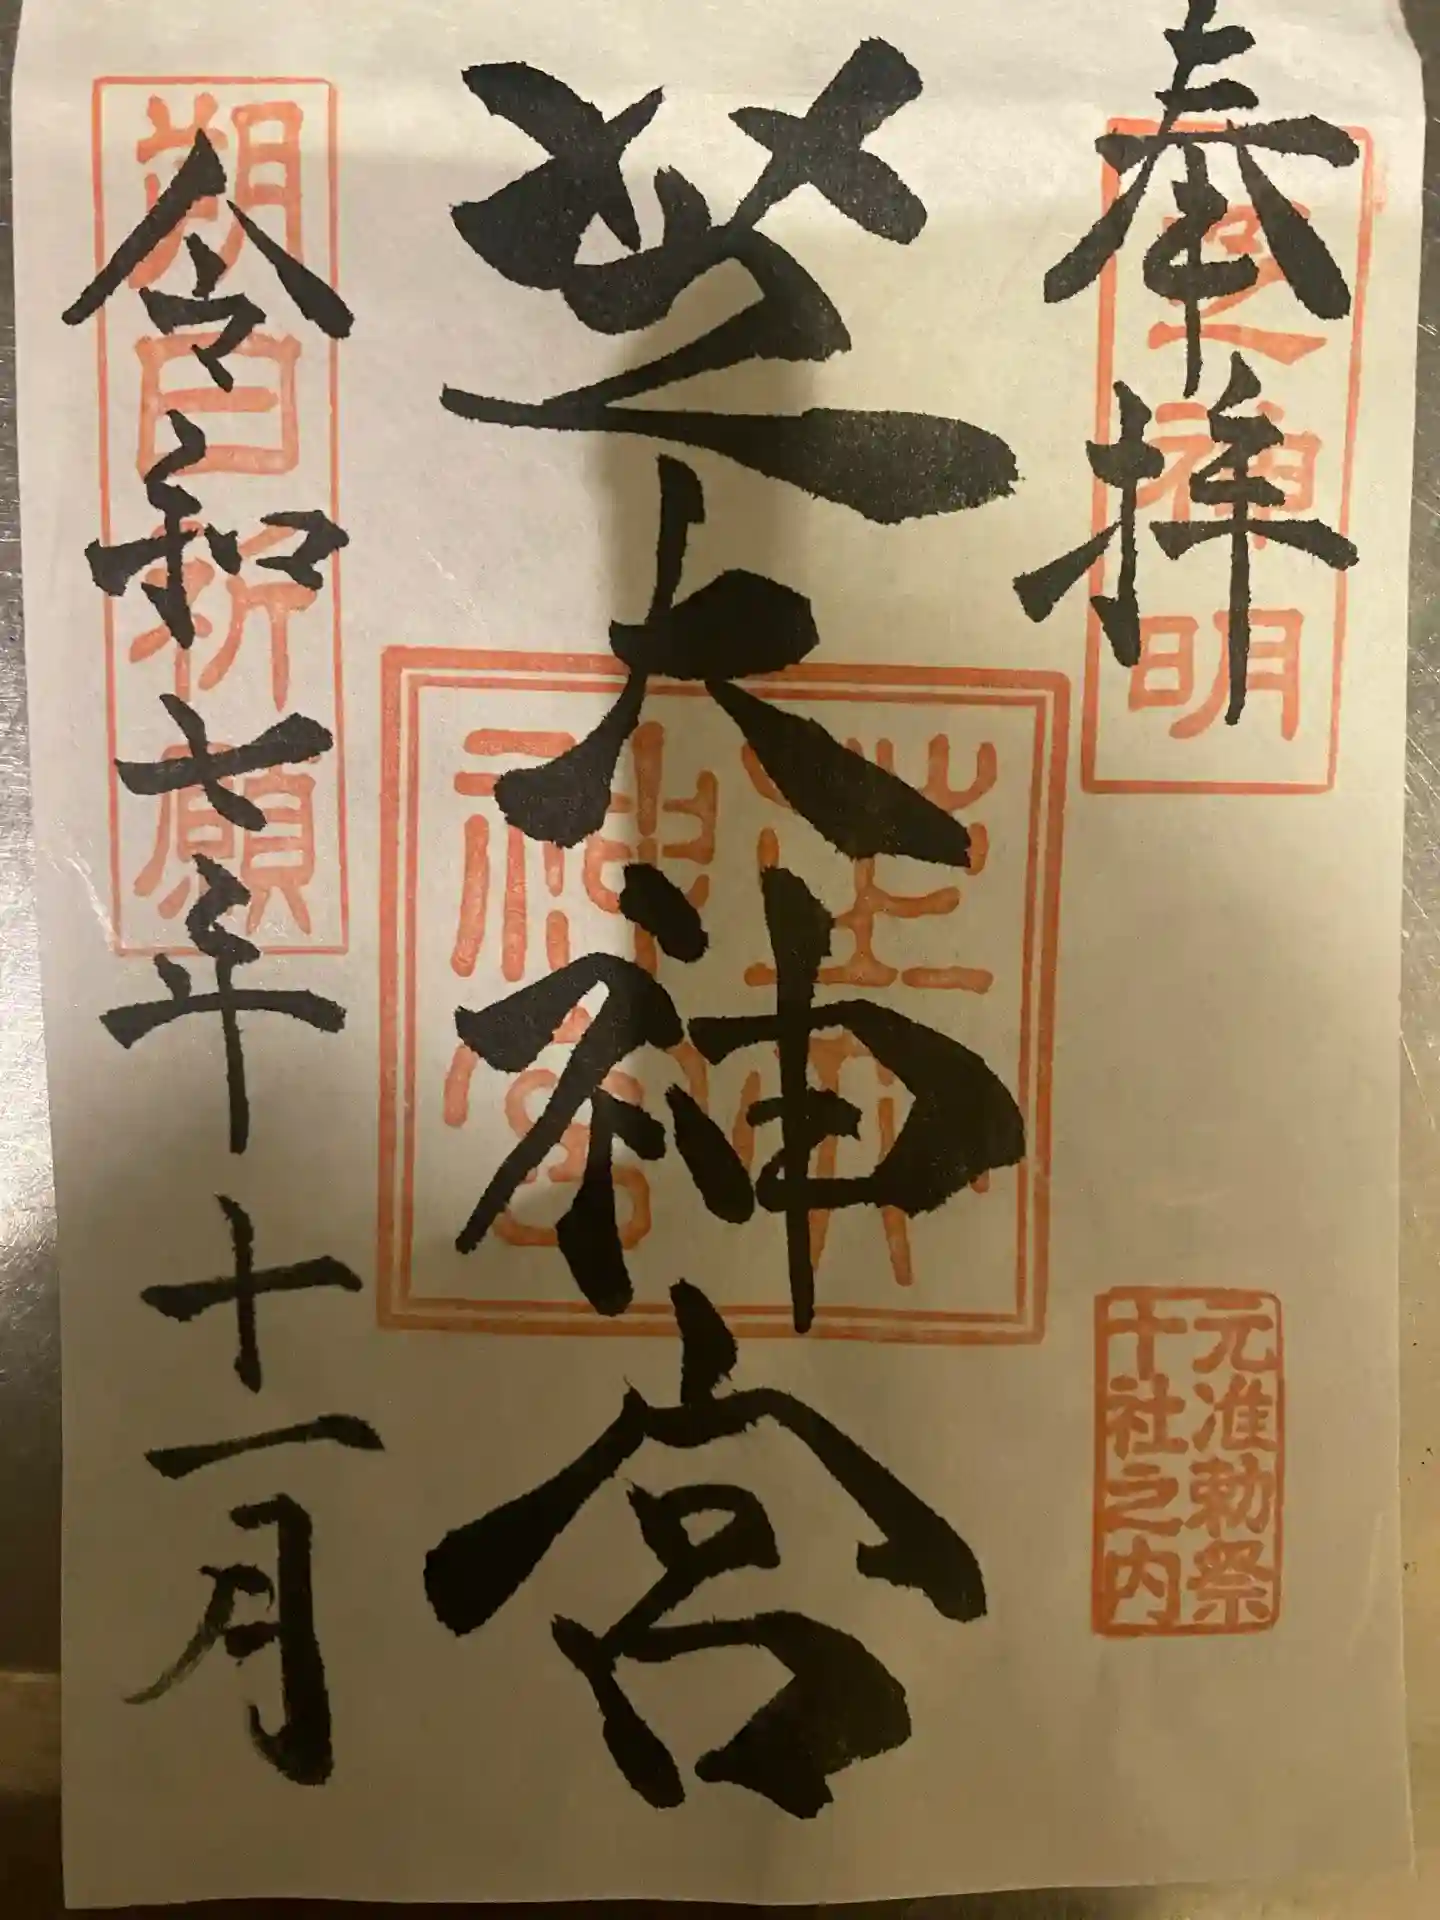 奉拝
芝神明
元准勅祭
十社之内
芝大神宮
芝大
神宮
令和七年十一月
朔日祈願